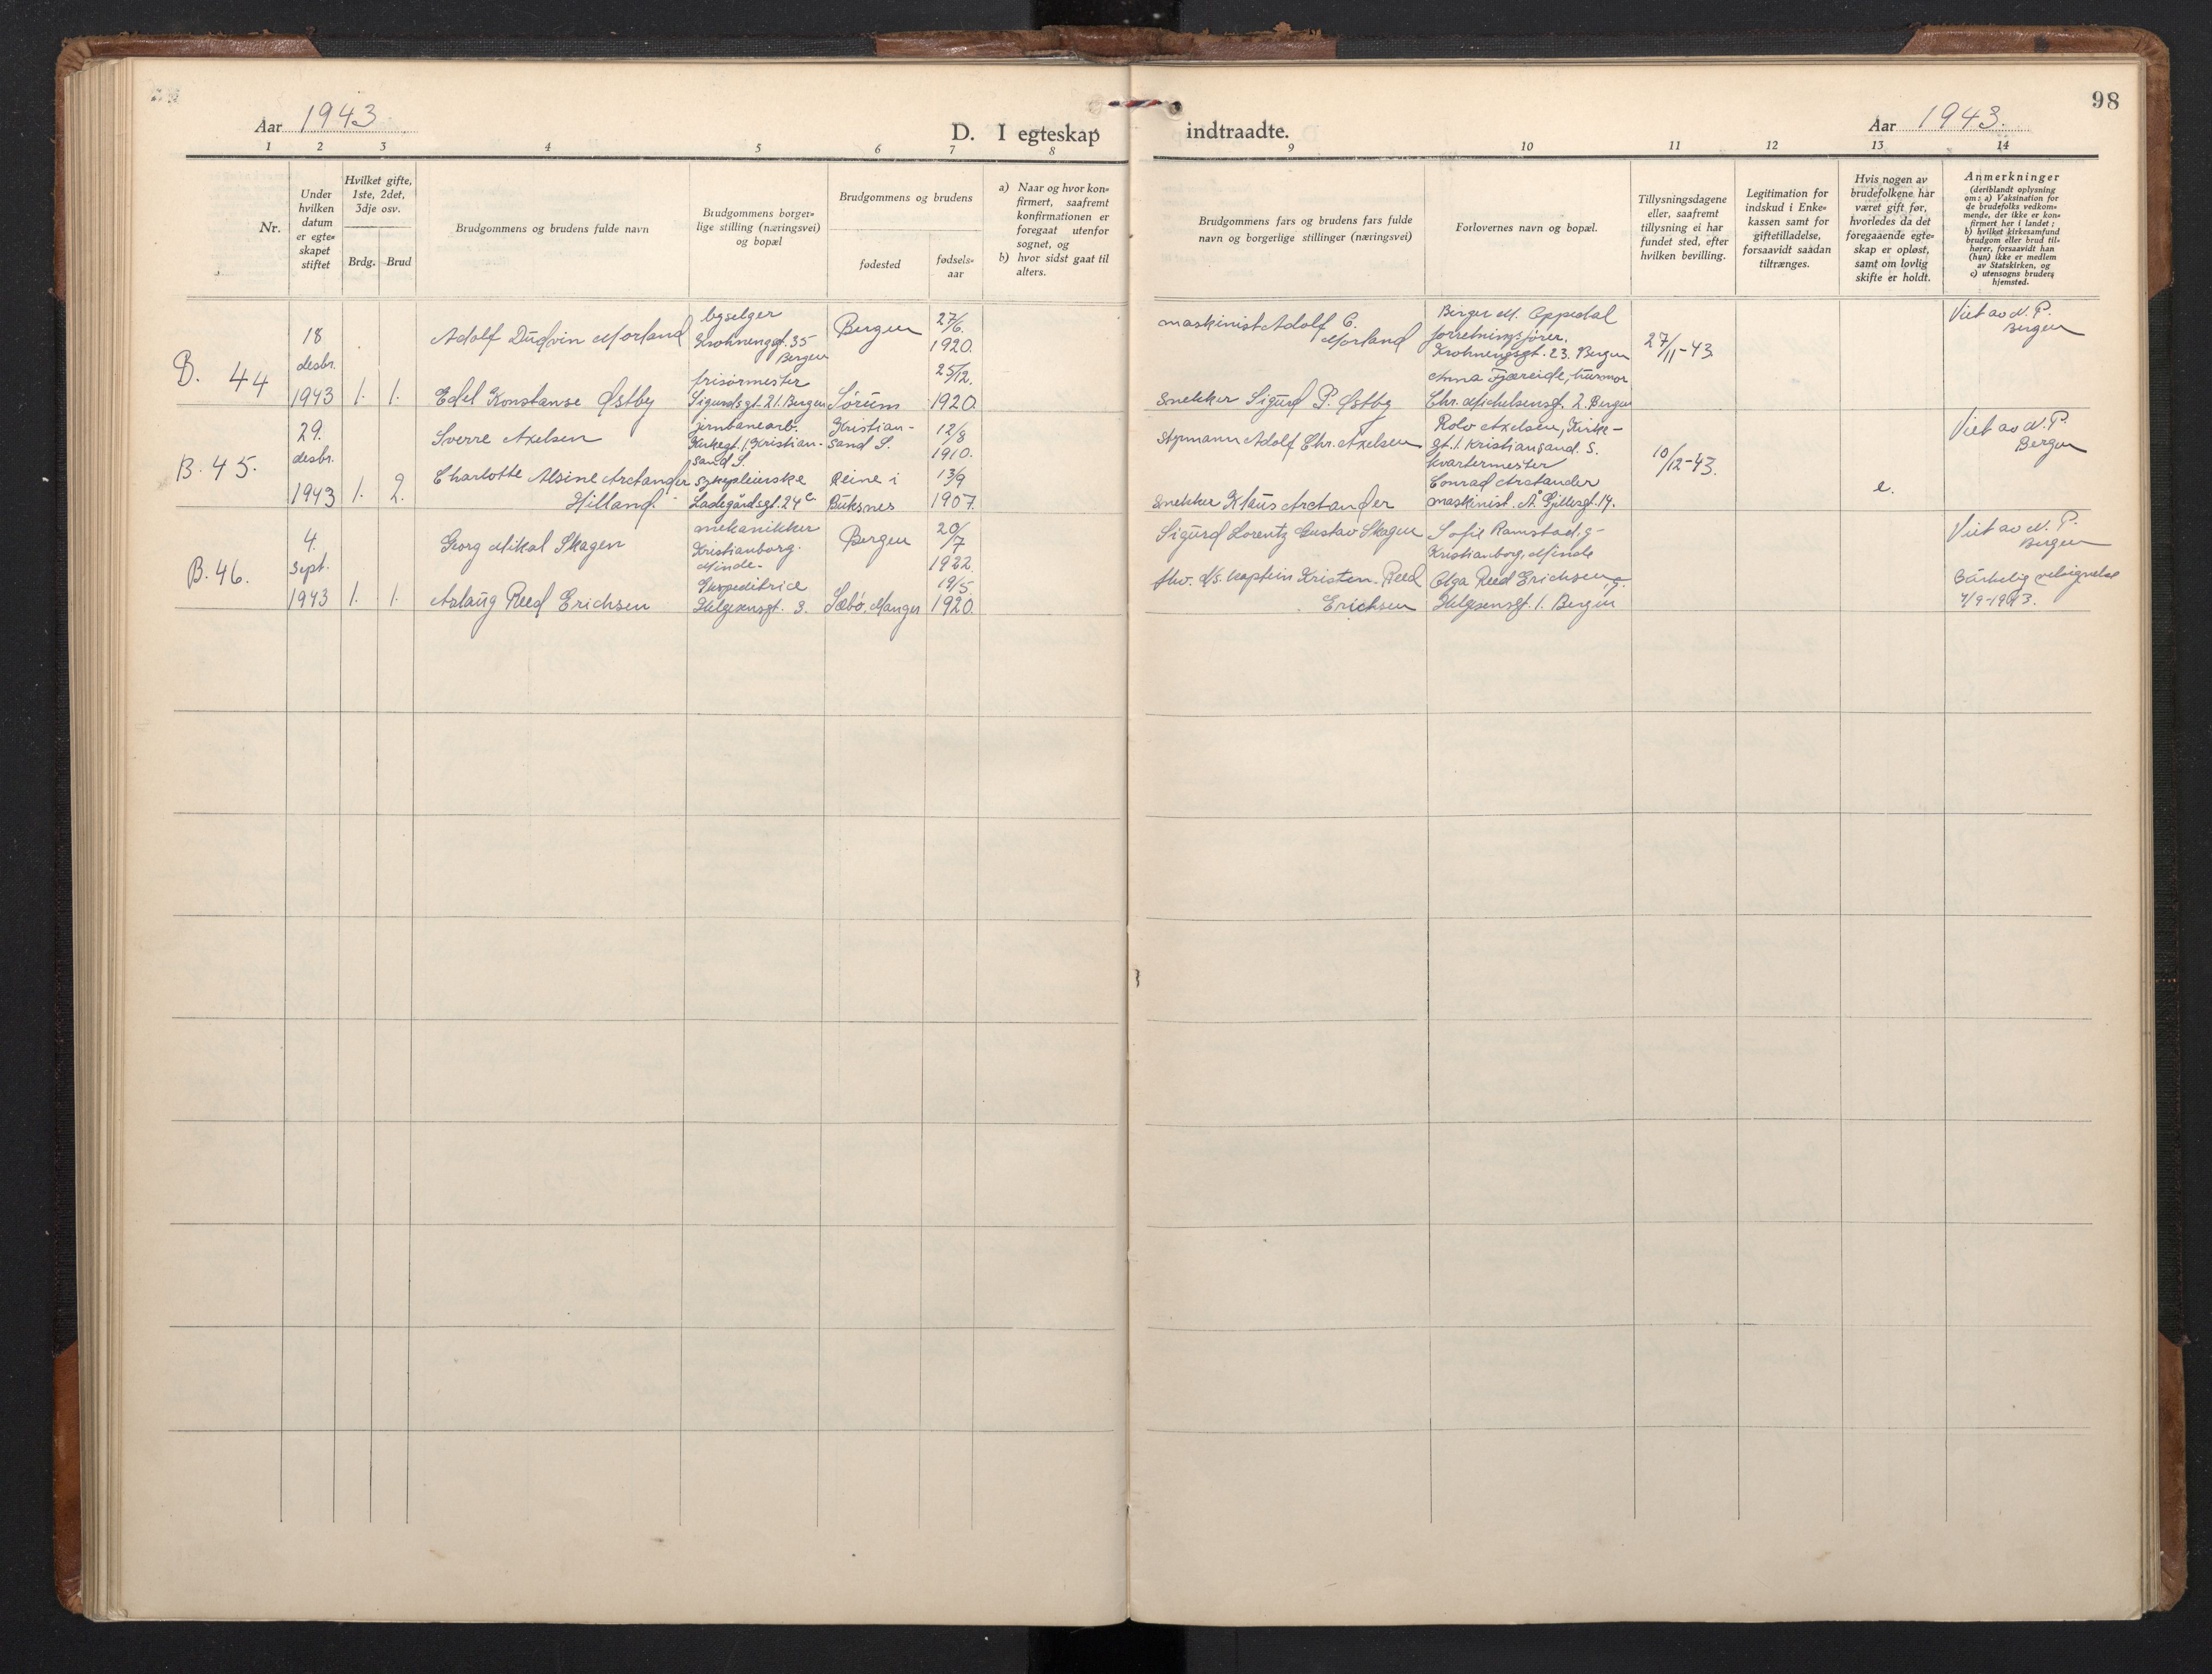 98
Aar 1943
D. I egteskap indtraadte.
Aar 1943.
1 2 3 4 5 6 7 8 9 10 11 12 13 14
Nr.
Under
hvilken
datum
er egte-
skapet
stiftet
Hvilket gifte,
1ste, 2det,
3dje osv.
Brdg. Brud
Brudgommens og brudens fulde navn
Brudgommens borger-
lige stilling (næringsvei)
og bopæl
Brudgommens og brudens
fødested
fødsels-
aar
a) Naar og hvor kon-
firmert, saafremt
konfirmationen er
foregaat utenfor
sognet, og
b) hvor sidst gaat til
alters.
Brudgommens fars og brudens fars fulde
navn og borgerlige stillinger (næringsvei)
Forlovernes navn og bopæl.
Tillysningsdagene
eller, saafremt
tillysning ei har
fundet sted, efter
hvilken bevilling.
Legitimation for
indskud i Enke-
kassen samt for
giftetilladelse,
forsaavidt saadan
tiltrænges.
Hvis nogen av
brudefolkene har
været gift før,
hvorledes da det
foregaaende egte-
skap er opløst,
samt om lovlig
skifte er holdt.
Anmerkninger
(deriblandt oplysning
om: a) Vaksination for
de brudefolks vedkom-
mende, der ikke er kon-
firmert her i landet;
b) hvilket kirkesamfund
brudgom eller brud til-
hører, forsaavidt han
(hun) ikke er medlem
av Statskirken, og
c) utensogns bruders
hjemsted.
B. 44
18
desbr.
1943
1. 1.
Adolf Dudvin Morland
Edel Konstanse Østby
byselger
Krohnenggt. 35
Bergen
frisørmester
Sigurdsgt. 21. Bergen
Bergen
Sørum
27/6.
1920.
25/12.
1920.
maskinist Adolf C.
Morland
Snekker Sigurd P. Østby
Birger M. Oppedal
forretningsfører.
Krohnengsgt. 23. Bergen
Anna Fjæreide, husmor
Chr. Michelsensgt. 2. Bergen
27/11-43.
Viet av N. P.
Bergen
B. 45.
29.
desbr.
1943
1. 2.
Sverre Axelsen
Charlotte Alsine Arctander
Hilland.
jernbanearb.
Kirkegt. 1 Kristian-
sand S.
sykepleierske
Ladegårdsgt. 24 c.
Kristian-
sand S.
Reine i
Buksnes
12/8
1910.
13/9
1907.
Styrmann Adolf Chr. Axelsen
Snekker Klaus Arctander
Rolv Axelsen, Kirke-
gt. 1. Kristiansand. S.
kvartermester
Conrad Arctander
maskinist. A. Gjellesgt. 14.
10/12-43.
e.
Viet av N. P.
Bergen
B. 46.
4.
sept.
1943
1. 1.
Georg Mikal Skagen
Aslaug Reed Erichsen
mekanikker
Kristianborg.
Minde.
Ekspeditrice
Helgesensgt. 3.
Bergen
Sæbø, Manger
20/7
1922.
19/5.
1920.
Sigurd Lorentz Gustav Skagen
fhv. d/s. kaptein Kristen. Reed
Erichsen
Sofie Ramstad, g-
Kristianborg, Minde
Olga Reed Erichsen, g.
Helgesensgt. 1. Bergen
Viet av N. P.
Bergen
Særkelig velsignelse
4/9-1943.